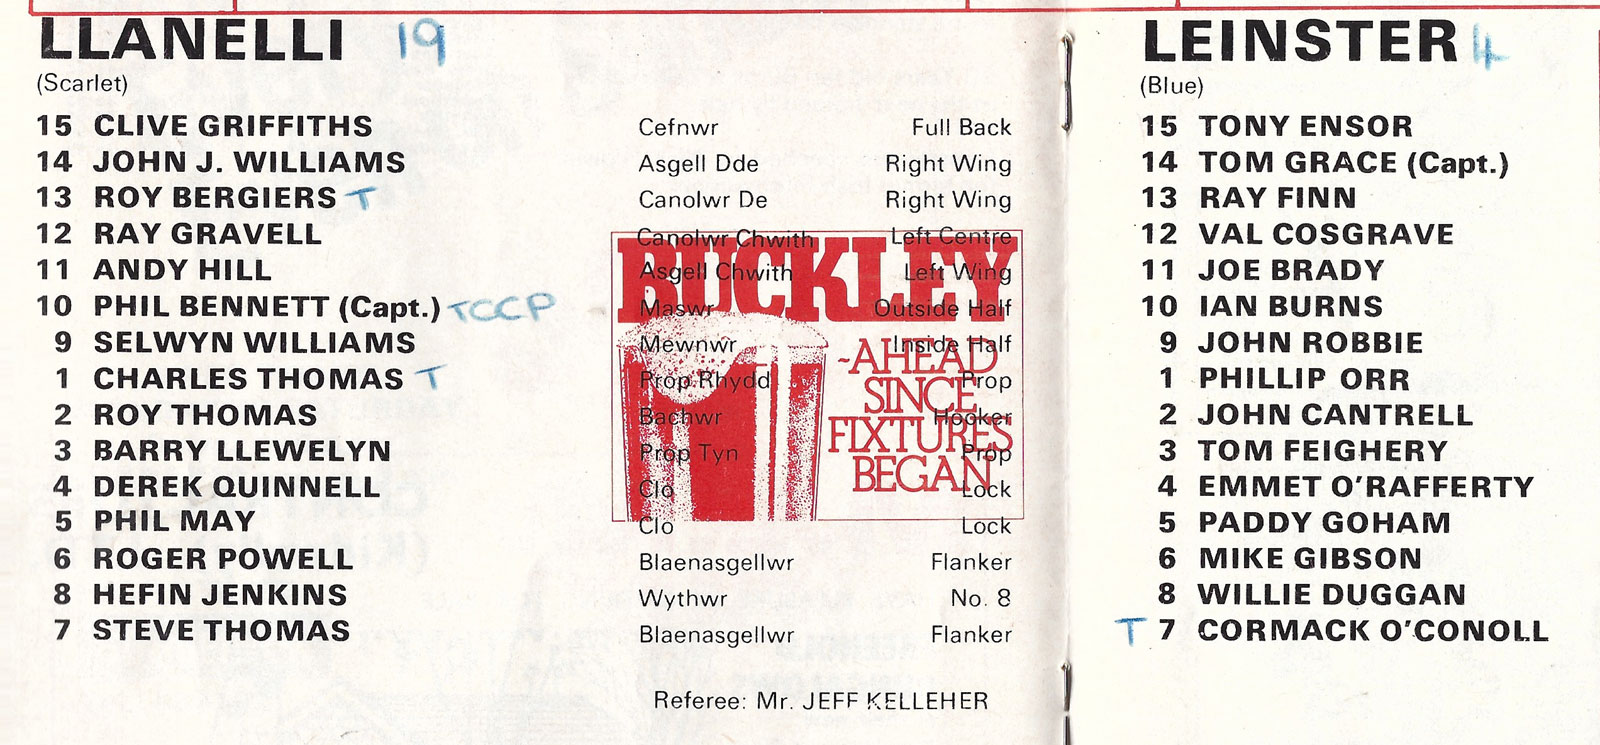 LLANELLI 19
(Scarlet)
15 CLIVE GRIFFITHS
14 JOHN J. WILLIAMS
13 ROY BERGIERS T
12 RAY GRAVELL
11 ANDY HILL
10 PHIL BENNETT (Capt.) TCCP
9 SELWYN WILLIAMS
1 CHARLES THOMAS T
2 ROY THOMAS
3 BARRY LLEWELYN
4 DEREK QUINNELL
5 PHIL MAY
6 ROGER POWELL
8 HEFIN JENKINS
7 STEVE THOMAS
Cefnwr Full Back
Asgell Dde Right Wing
Canolwr De Right Wing
Canolwr Chwith Left Centre
Asgell Chwith Left Wing
Maswr Outside Half
Mewnwr Inside Half
Prop Rhydd Prop
Bachwr Hooker
Prop Tyn Prop
Clo Lock
Clo Lock
Blaenasgellwr Flanker
Wythwr No. 8
Blaenasgellwr Flanker
BUCKLEY
~AHEAD
SINCE
FIXTURES
BEGAN
Referee: Mr. JEFF KELLEHER
LEINSTER 4
(Blue)
15 TONY ENSOR
14 TOM GRACE (Capt.)
13 RAY FINN
12 VAL COSGRAVE
11 JOE BRADY
10 IAN BURNS
9 JOHN ROBBIE
1 PHILLIP ORR
2 JOHN CANTRELL
3 TOM FEIGHERY
4 EMMET O'RAFFERTY
5 PADDY GOHAM
6 MIKE GIBSON
8 WILLIE DUGGAN
T 7 CORMACK O'CONOLL